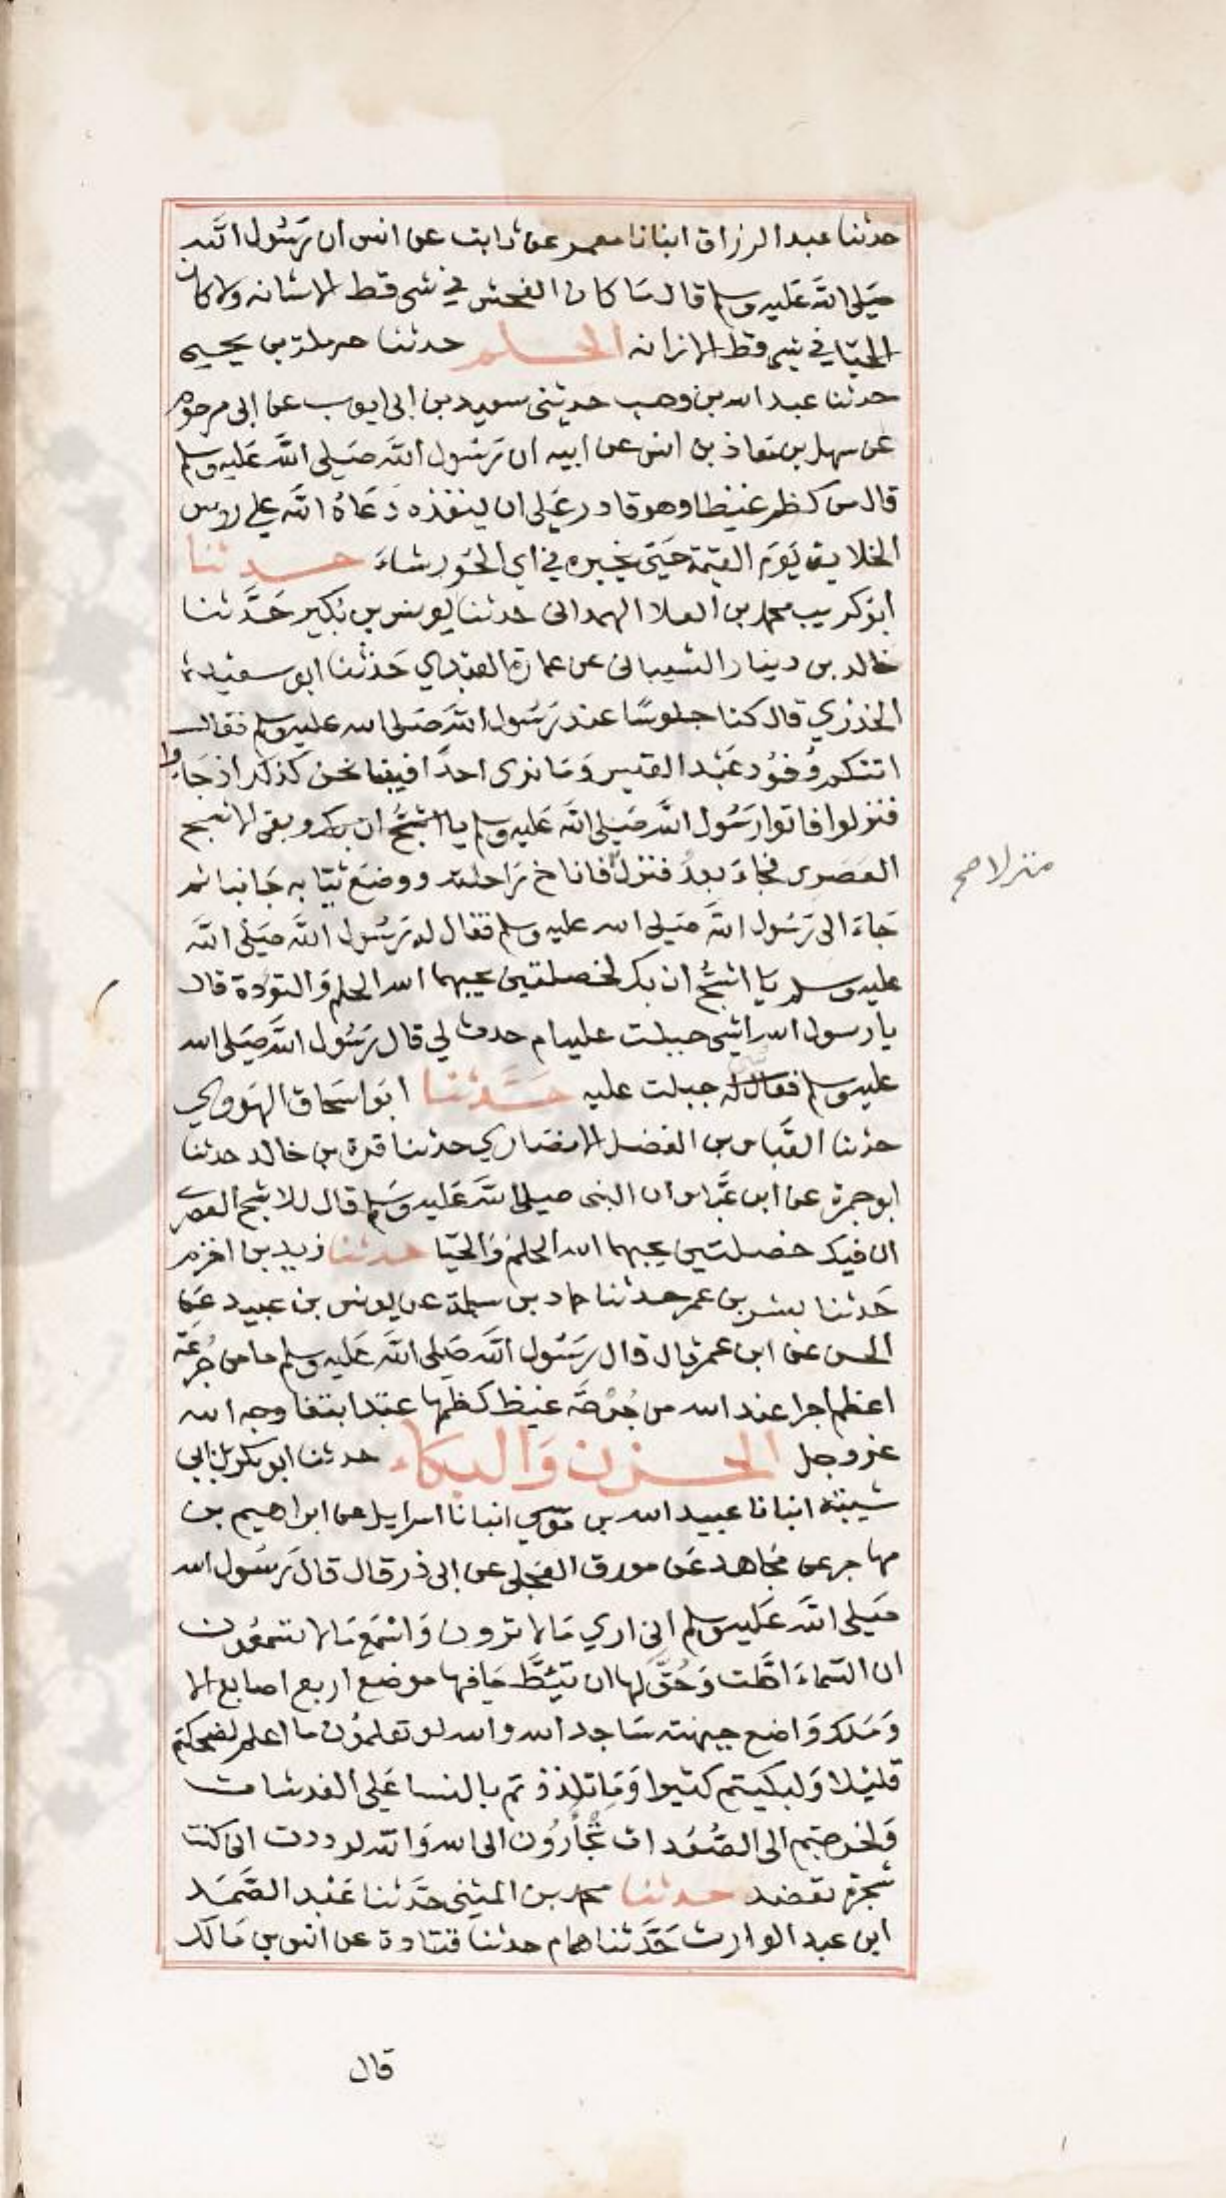 حدثنا عبد الرزاق انبانا معمر عن ثابت عن انس ان رَسُول الله
صَلى الله عَليه وسلم قال مَا كان الفحش في شى قط الا شانه ولا كان
الحيا في شى قط الا زانه الحلم حدثنا حرملة بن يحيى
حدثنا عبد الله بن وهب حدثنى سعيد بن ابى ايوب عن ابى مرحوم
عن سهل بن معاذ بن انس عن ابيه ان رَسُول الله صَلى الله عَليه وسلم
قال من كظم غيظا وهو قادر عَلى ان ينفذه دَعَاهُ الله على روس
الخلايق يَوم القيمة حَتى يخيره في اي الحُور شاءَ حدثنا
ابو كريب محمد بن العلا الهمدانى حدثنا يونس بن بُكير حَدَّثنا
خالد بن دينار الشيبانى عن عمارة العبدي حَدثنا ابو سعيد
الخدري قال كنا جلوسًا عند رَسُول الله صَلى الله عليه وسلم فقال
اتتكم وُفوُد عَبْد القيس وَمَا نرى احدًا فبينا نحن كذلك اذ جَاوا
فنزلوا فاتوا رَسُول الله صَلى الله عَليه وسلم يا اشبَحُّ ان بك وبقى الاشج
العَصَرى فجاءَ بعدُ فنزل فاناخ رَاحلته ووضعَ ثيابه جَانبا ثم
منزلا صح
جَاءَ الى رَسُول الله صَلى الله عليه وسلم فقال له رَسُول الله صَلى الله
عليه وسلم يَا اشبحُّ ان بك لخصلتين يحبهما الله الحلم وَالتوُدة قال
يا رسول الله اشى جبلت عليه ام حدث لي قال رَسُول الله صَلى الله
عليه وسلم فقال له جبلت عليه حَدَّثنا ابو اسَحاق الهَروي
حدثنا العَباس بن الفضل الانصَاري حدثنا قرة بن خالد حدثنا
ابو جمرة عن ابن عَبَّاس ان النبى صلى الله عَليه وسَلم قال للاشج العصرى
ان فيك خصلتين يحبهما الله الحلم وَالحيا حدثنا زيد بن اخزم
حَدثنا بشر بن عمر حدثنا حماد بن سلمة عن يونس بن عبيد عَن
الحسن عن ابن عمر قال قال رَسُول الله صَلى الله عَليه وسلم ما من جُرعَة
اعظم اجرا عند الله من جُرْعَة غيظ كظمها عَبْد ابتغا وجه الله
عز وجل الحزن وَالبكاء حدثنا ابو بكر بن ابي
شيبة انبانا عبيد الله بن مُوسي انبانا اسرايل عن ابراهيم بن
مهاجر عن مجاهد عَن مورق العجلى عن ابى ذر قال قال رَسُول الله
صَلى الله عَليه وسلم انى اري مَا لا ترون وَاسْمَع مَا لا تسمعُون
ان السّماءَ اطّت وَحُقَّ لها ان تئطّ مَا فيها موضع اربع اصابع الا
وَمَلك وَاضع جبهته سَاجد الله والله لو تعلموُن ما اعلم لضحكتم
قليْلا وَلبكيتم كثيرا وَمَا تلذذتم بالنسا عَلى الفرشات
وَلخرجتم الى الصُّعُدات تُجْأَرُون الى الله وَالله لوددت انى كنت
شجرة تعضد حدثنا محمد بن المثنى حدَّثنا عَبْد الصَّمَد
ابن عبد الوارث حَدَّثنا همام حدثنا قتادة عن انس بن مَالك
قال